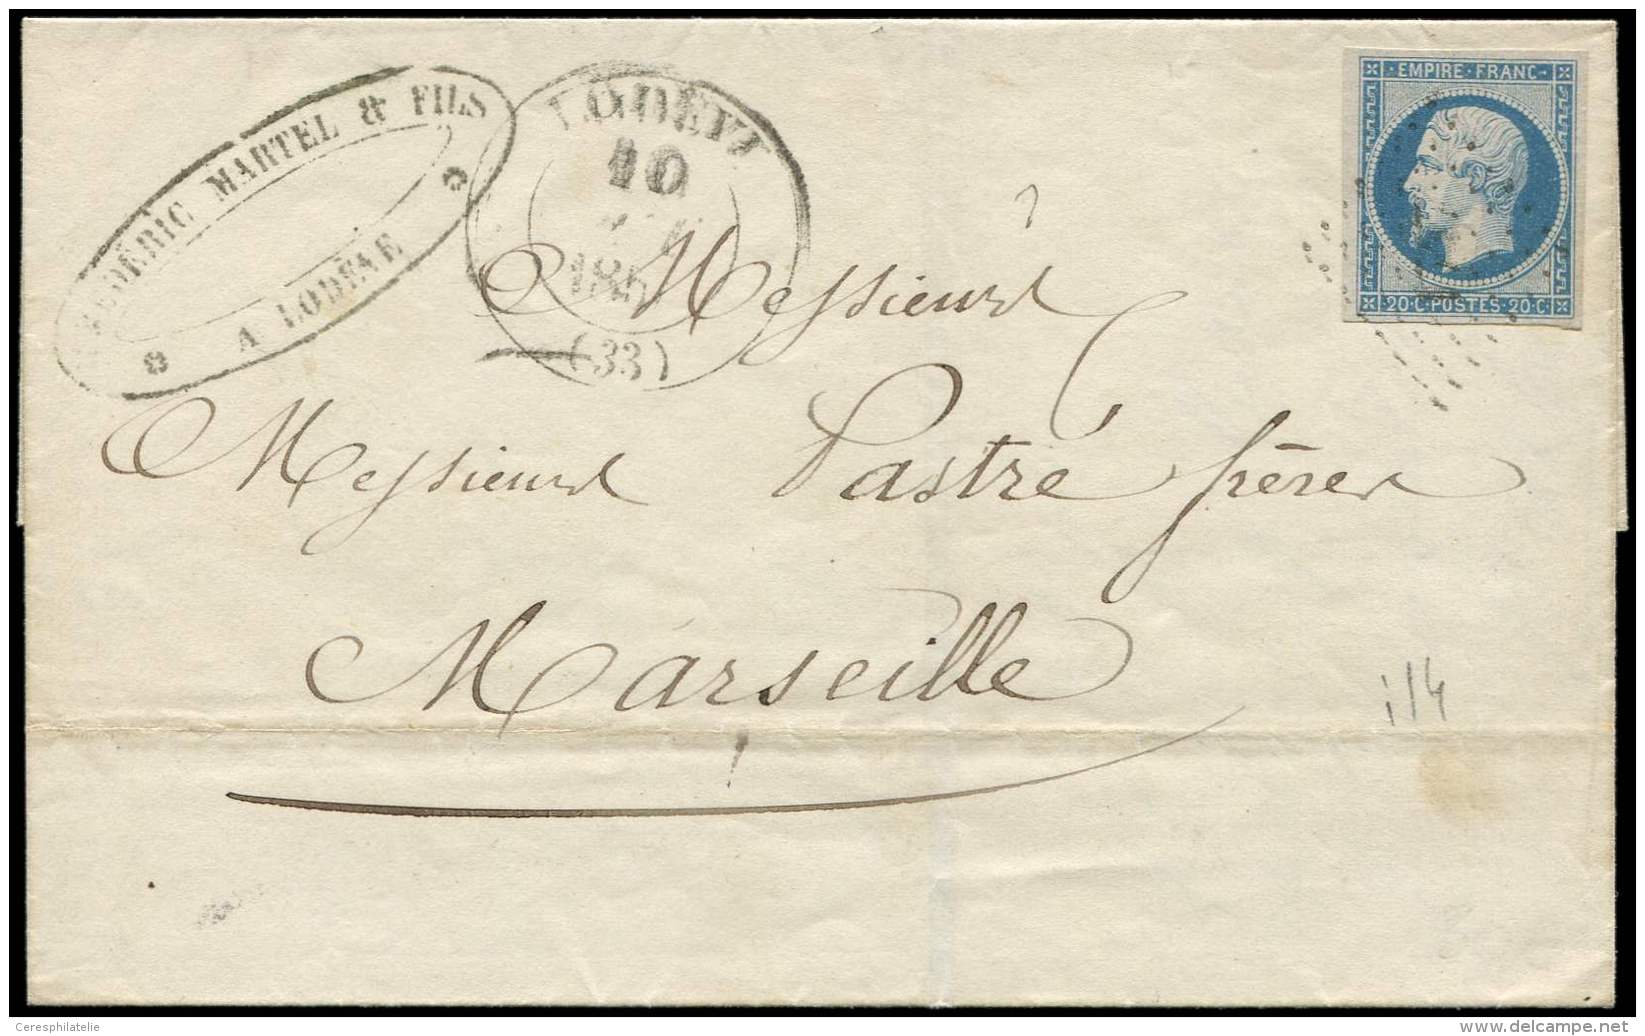 FRÉDÉRIC MARTEL & FILS
A LODÈVE
LODÈVE
10
185
(33)
EMPIRE · FRANC
20·C·POSTES·20·C
Messieurs
Messieurs Pastré frères
Marseille
Ceresphilatelie
delcampe.net